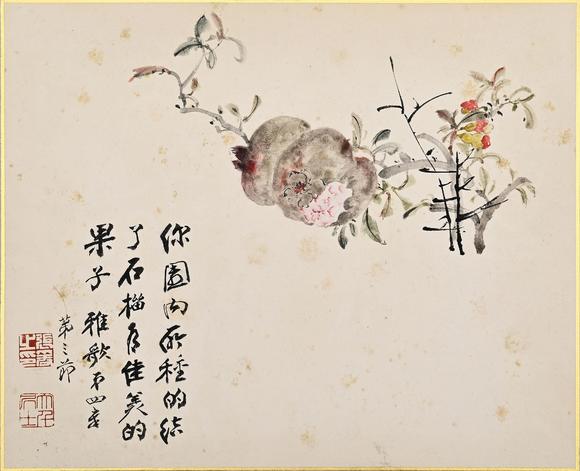 你園內所種的結
了石榴有佳美的
果子 雅歌第四章
第三節
張爰之印